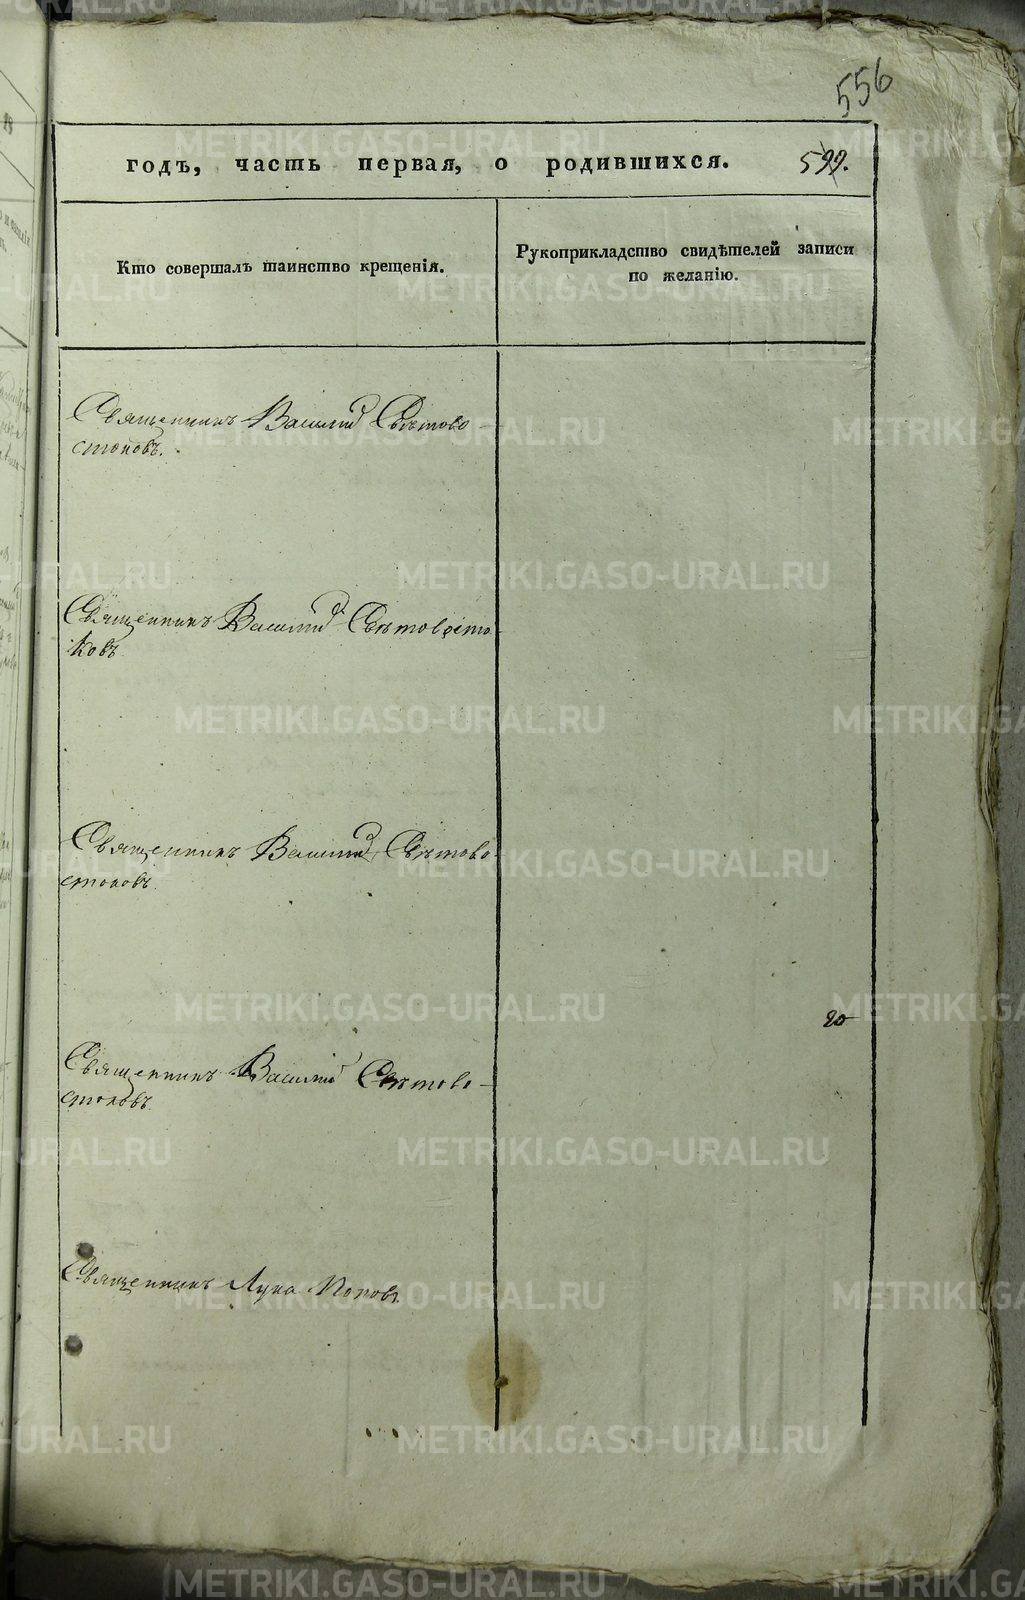 556
годъ, часть первая, о родившихся. 599.
Кто совершалъ таинство крещенія.
Рукоприкладство свидѣтелей записи
по желанію.
Священникъ Василій Свѣтово-
стоковъ.
Священникъ Василій Свѣтовосто-
ковъ.
Священникъ Василій Свѣтово-
стоковъ.
Священникъ Василій Свѣтово-
стоковъ.
20
Священникъ Лука Поповъ.
METRIKI.GASO-URAL.RU